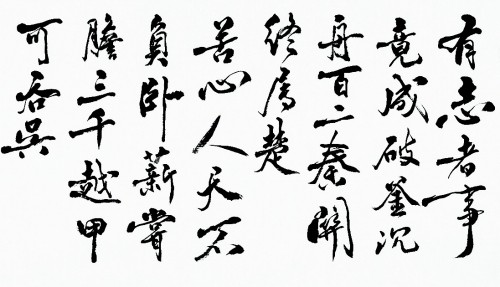 有志者事
竟成破釜沉
舟百二秦關
終属楚
苦心人天不
負卧薪嘗
膽三千越甲
可吞吳